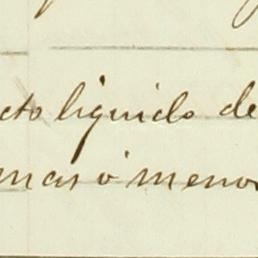 cto liquido de
mas o menos